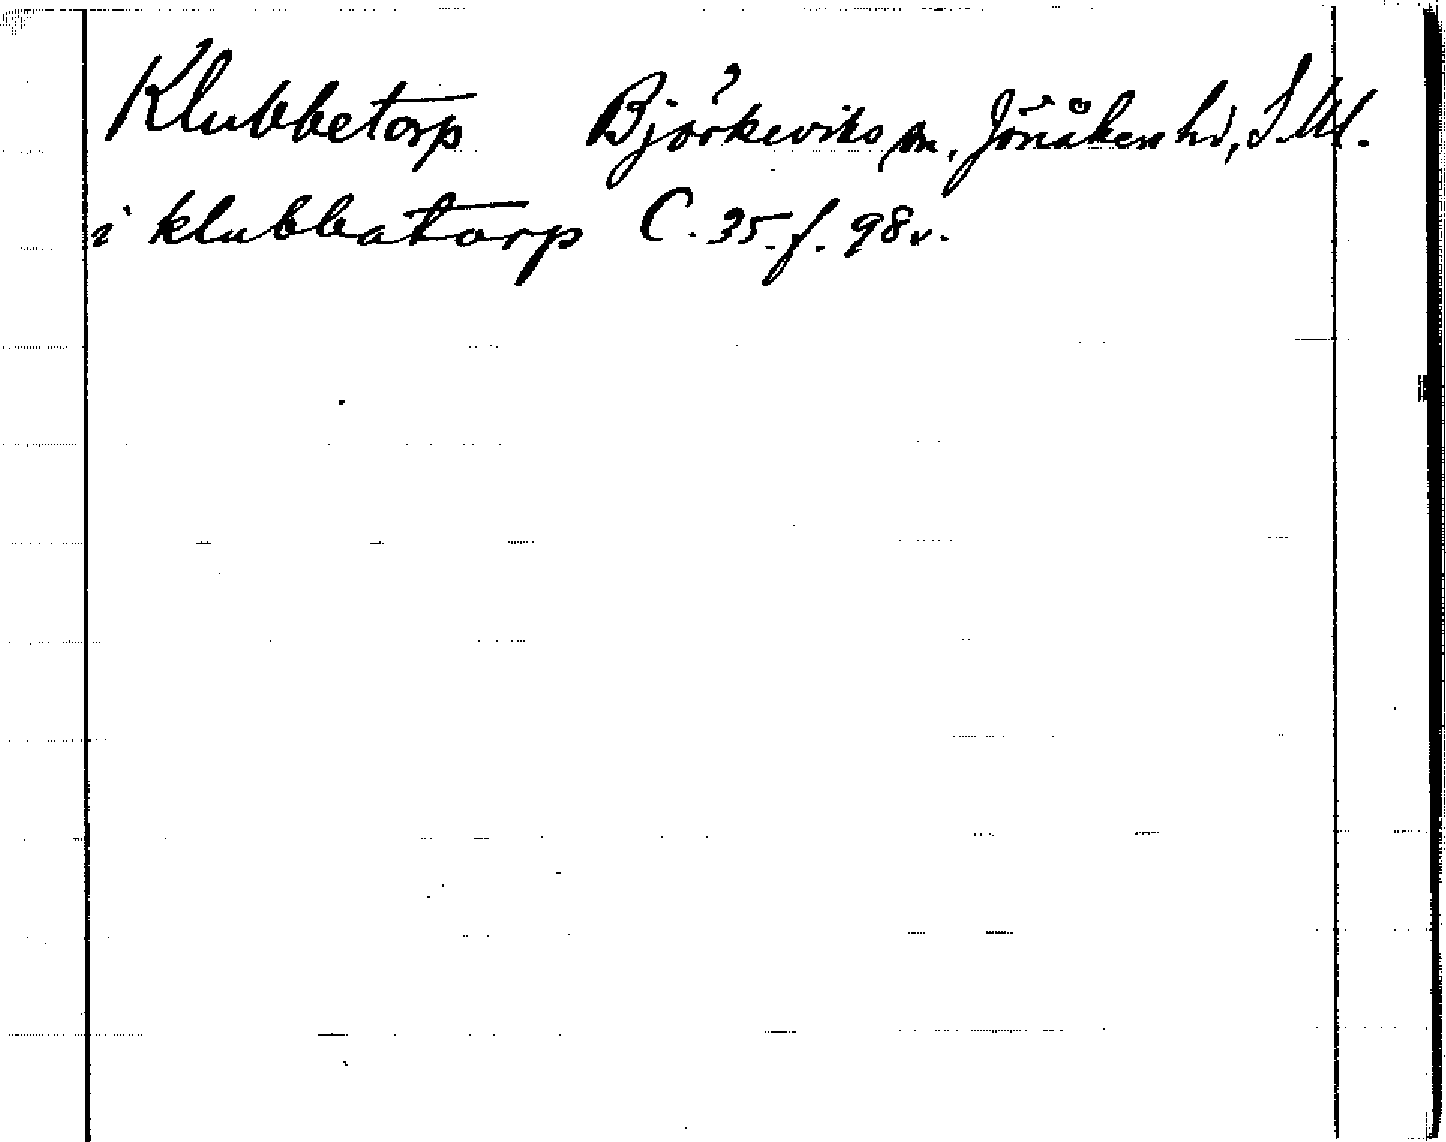 Klubbetorp Björkeviks sn, Jönåkers hd, S.M.
i klubbatorp C. 35 f. 98v.